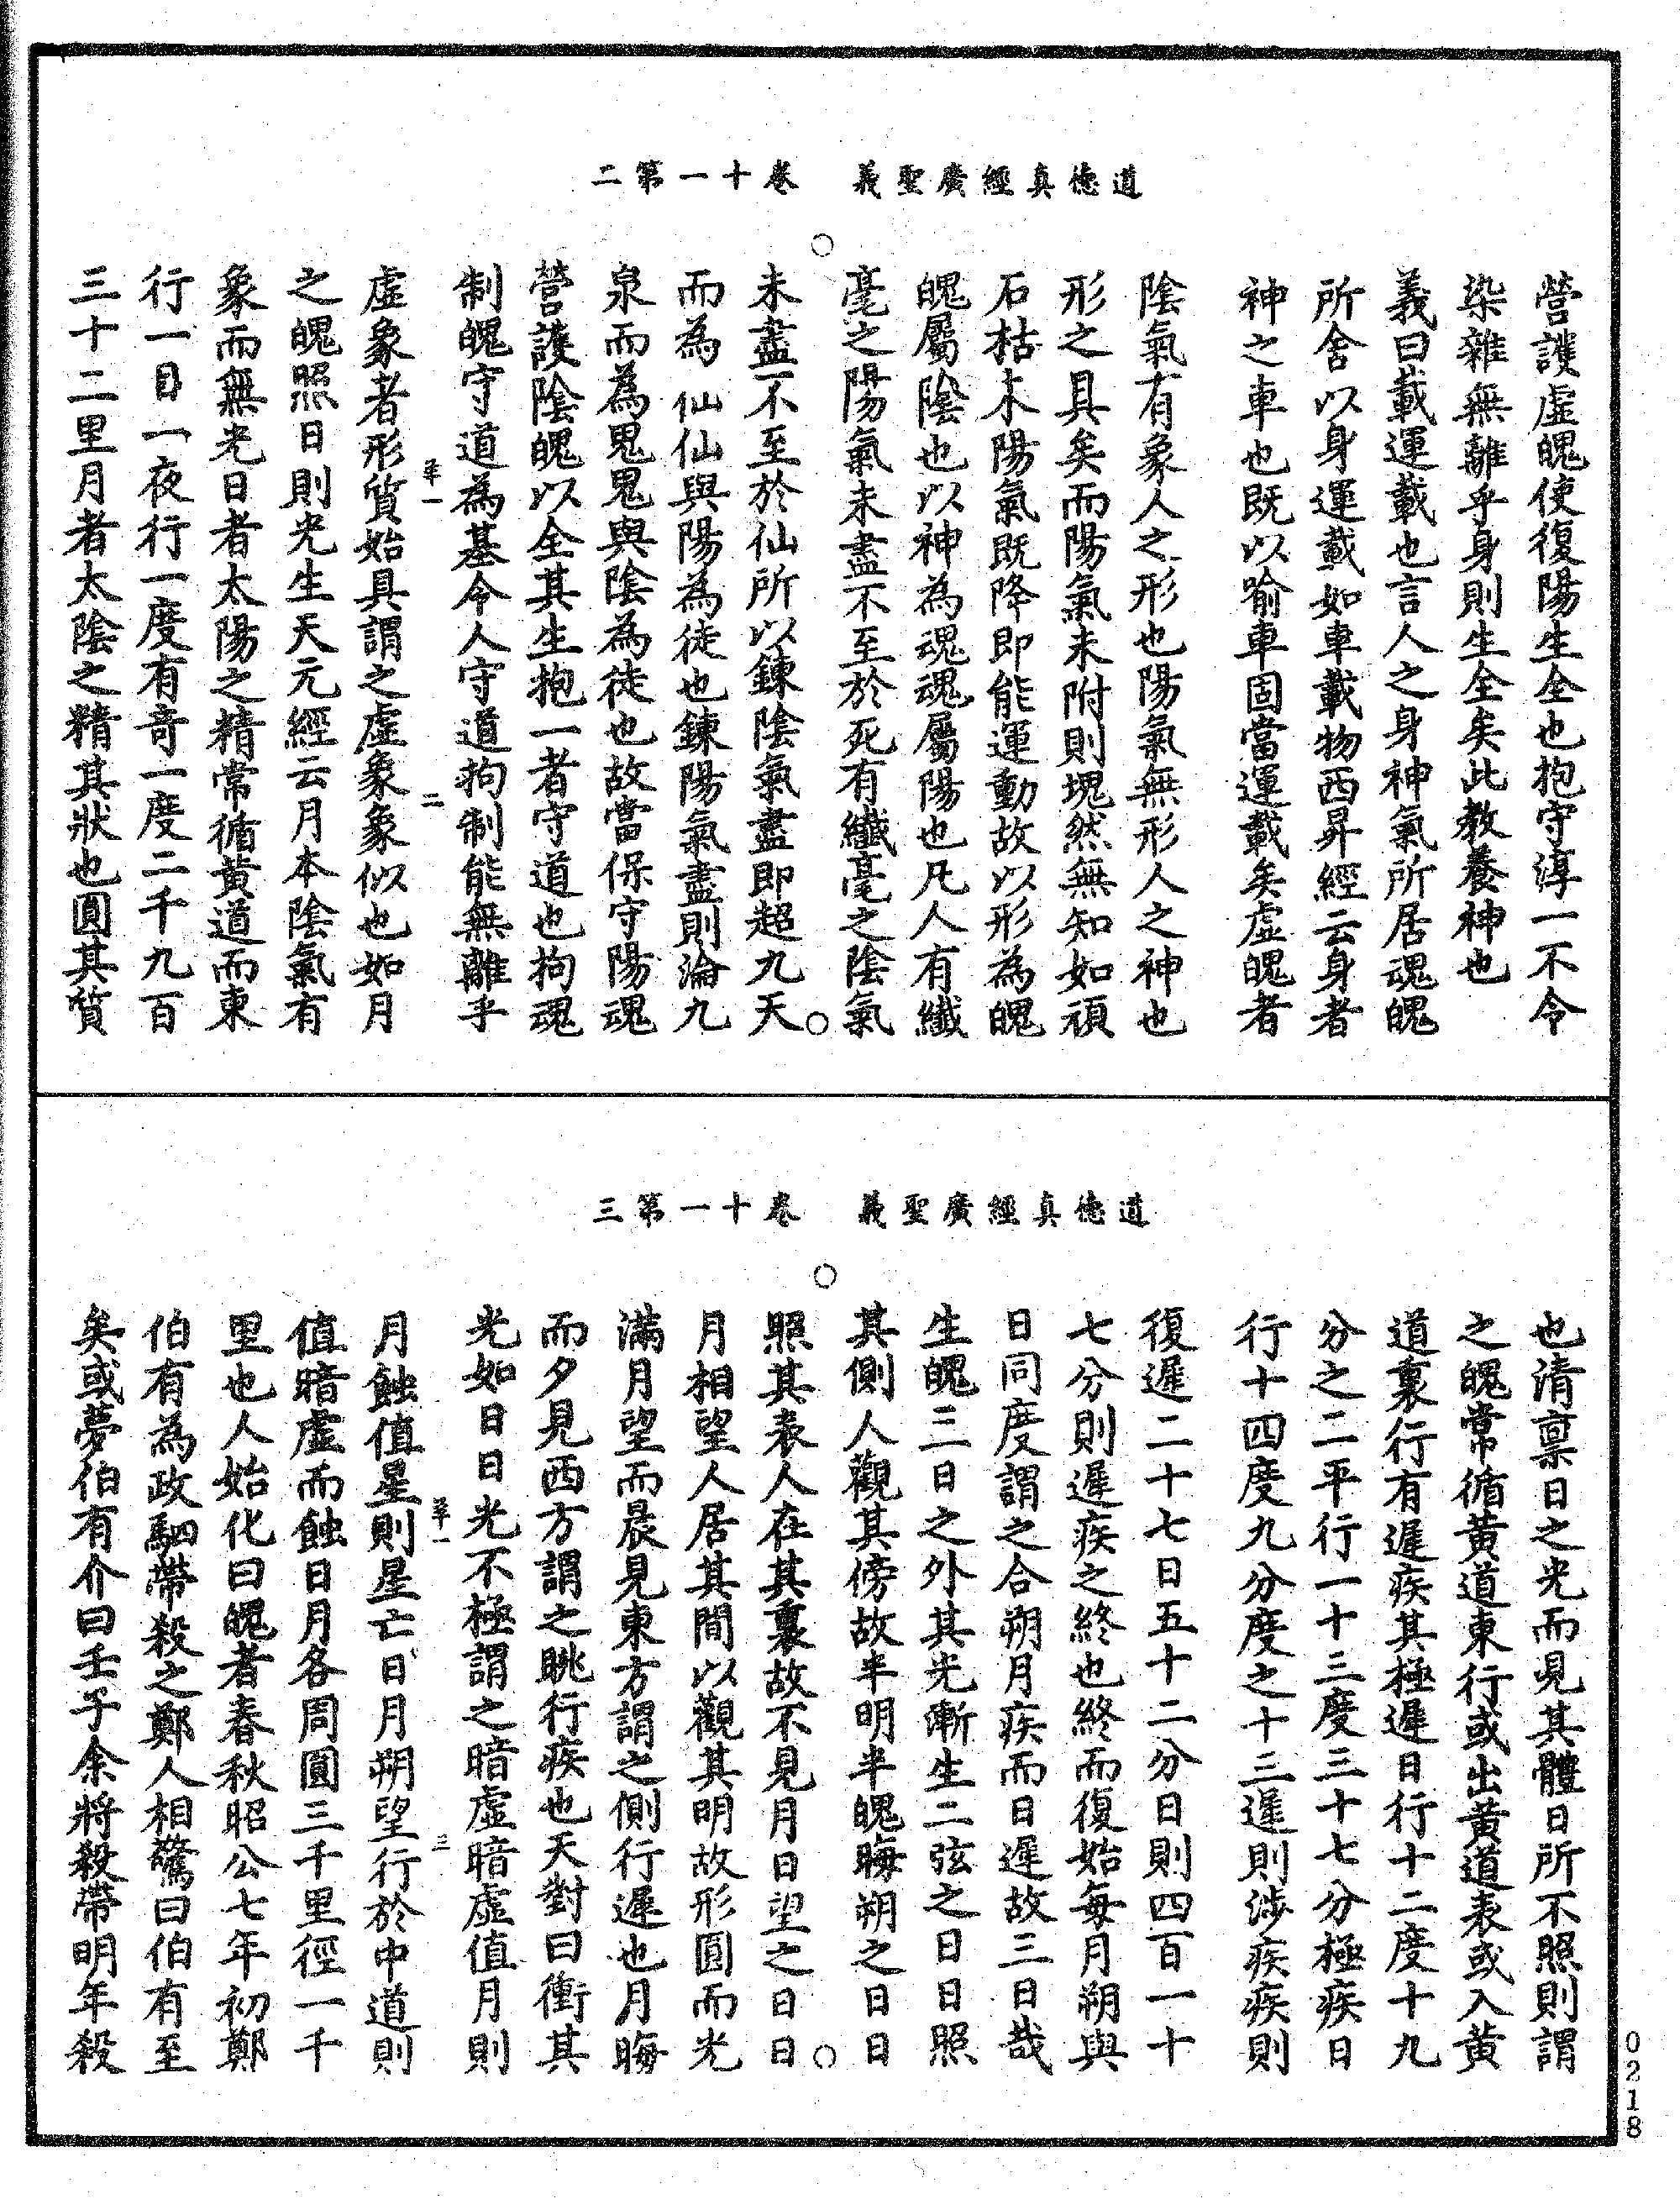 道德真經廣聖義　卷十一第二
營護虛魄使復陽生全也抱守淳一不令
染雜無離乎身則生全矣此教養神也
義曰載運載也言人之身神氣所居魂魄
所舍以身運載如車載物西昇經云身者
神之車也既以喻車固當運載矣虛魄者
陰氣有象人之形也陽氣無形人之神也
形之具矣而陽氣未附則塊然無知如頑
石枯木陽氣既降即能運動故以形為魄
魄屬陰也以神為魂魂屬陽也凡人有纖
毫之陽氣未盡不至於死有纖毫之陰氣
未盡不至於仙所以鍊陰氣盡即超九天
而為仙仙與陽為徒也鍊陽氣盡則淪九
泉而為鬼鬼與陰為徒也故當保守陽魂
營護陰魄以全其生抱一者守道也拘魂
制魄守道為基令人守道拘制能無離乎
虛象者形質始具謂之虛象象似也如月
之魄照日則光生天元經云月本陰氣有
象而無光日者太陽之精常循黃道而東
行一日一夜行一度有奇一度二千九百
三十二里月者太陰之精其狀也圓其質
道德真經廣聖義　卷十一第三
也清禀日之光而見其體日所不照則謂
之魄常循黃道東行或出黃道表或入黃
道裏行有遲疾其極遲日行十二度十九
分之二平行一十三度三十七分極疾日
行十四度九分度之十三遲則涉疾疾則
復遲二十七日五十二分日則四百一十
七分則遲疾之終也終而復始每月朔與
日同度謂之合朔月疾而日遲故三日哉
生魄三日之外其光漸生二弦之日日照
其側人觀其傍故半明半魄晦朔之日日
照其表人在其裏故不見月日望之日日
月相望人居其間以觀其明故形圓而光
滿月望而晨見東方謂之側行遲也月晦
而夕見西方謂之朓行疾也天對曰衝其
光如日日光不極謂之暗虛暗虛值月則
月蝕值星則星亡日月朔望行於中道則
值暗虛而蝕日月各周圓三千里徑一千
里也人始化曰魄者春秋昭公七年初鄭
伯有為政駟帶殺之鄭人相驚曰伯有至
矣或夢伯有介曰壬子余將殺帶明年殺
0218